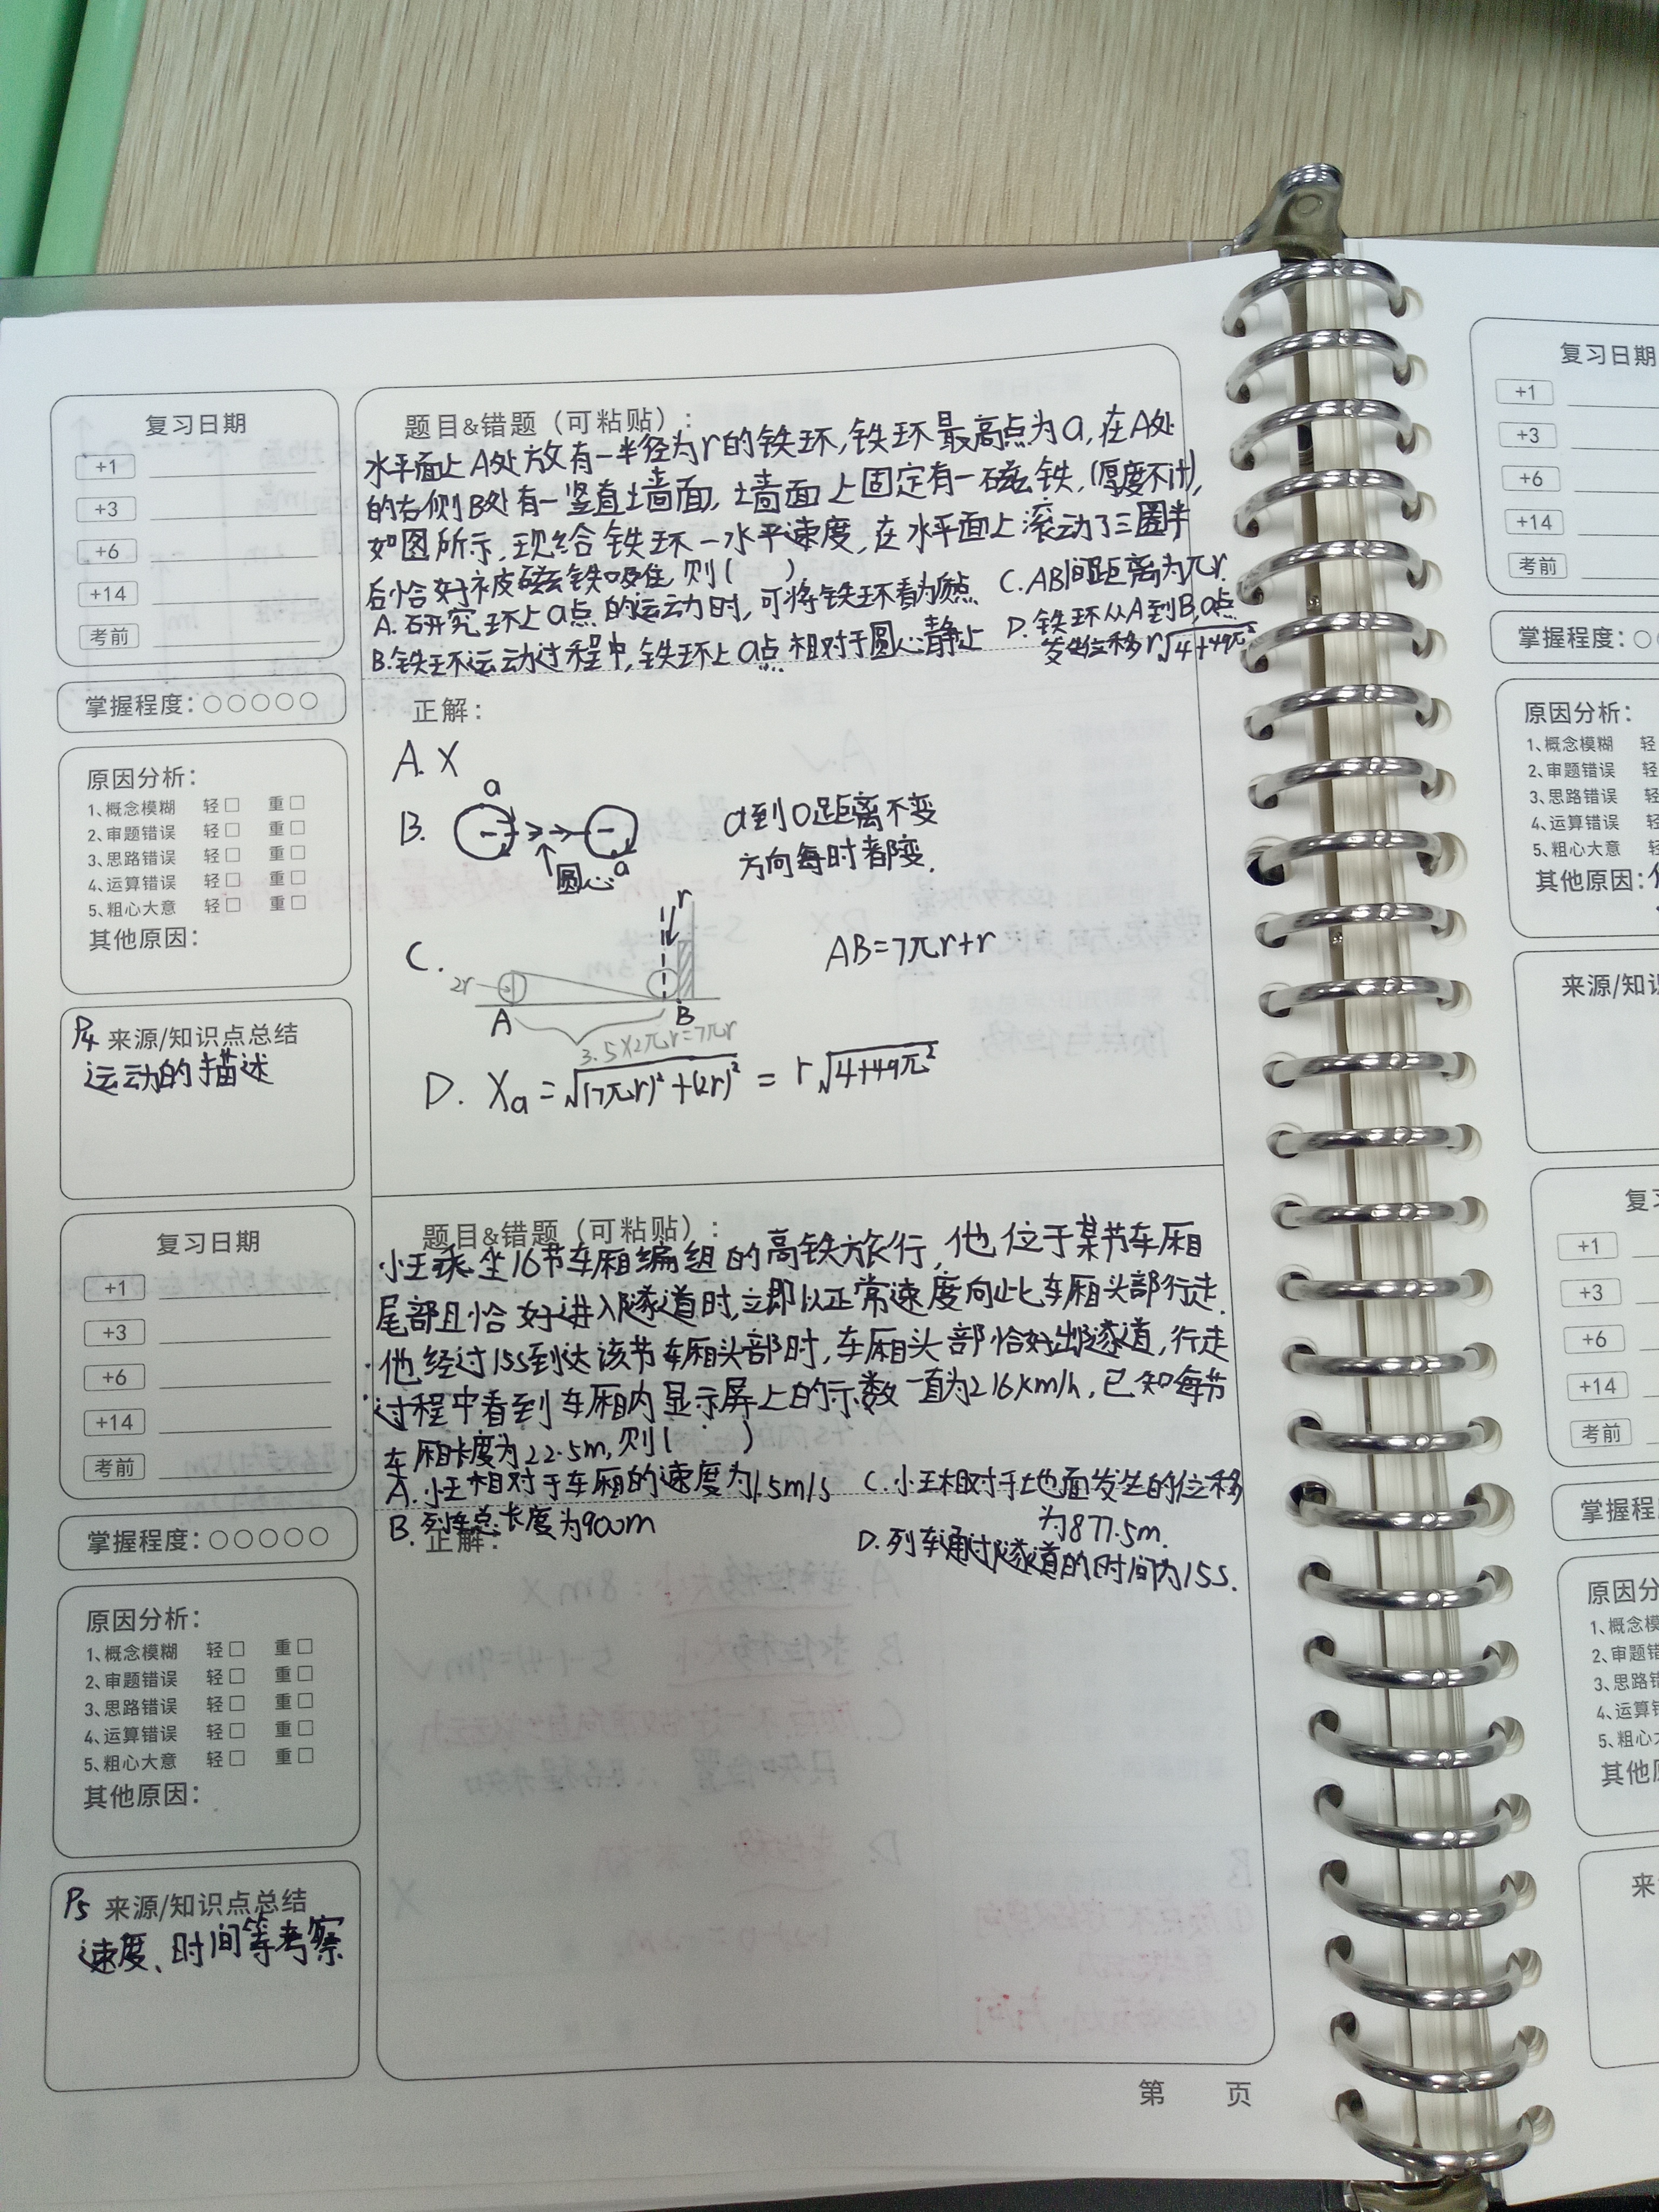 复习日期
+1
+3
+6
+14
考前
掌握程度：○○○○○
原因分析：
1、概念模糊 轻□ 重□
2、审题错误 轻□ 重□
3、思路错误 轻□ 重□
4、运算错误 轻□ 重□
5、粗心大意 轻□ 重□
其他原因：
P4 来源/知识点总结
运动的描述
题目&错题（可粘贴）：
水平面上A处放有一半径为r的铁环,铁环最高点为a,在A处
的右侧B处有一竖直墙面,墙面上固定有一磁铁,(厚度不计),
如图所示,现给铁环一水平速度,在水平面上滚动了三圈半
后恰好被磁铁吸住,则( )
A.研究环上a点的运动时,可将铁环看为质点 C.AB间距离为πr
B.铁环运动过程中,铁环上a点相对于圆心静止 D.铁环从A到B,a点
发生位移r√4+49π²
正解：
A. X
a
B.
圆心
a
a到O距离不变
方向每时都变.
r
C.
2r
A
B
3.5×2πr=7πr
AB=7πr+r
D. Xa=√(7πr)²+(2r)² = r√4+49π²
复习日期
+1
+3
+6
+14
考前
掌握程度：○○○○○
原因分析：
1、概念模糊 轻□ 重□
2、审题错误 轻□ 重□
3、思路错误 轻□ 重□
4、运算错误 轻□ 重□
5、粗心大意 轻□ 重□
其他原因：
P5 来源/知识点总结
速度、时间等考察
题目&错题（可粘贴）：
小王乘坐16节车厢编组的高铁旅行,他位于某节车厢
尾部且恰好进入隧道时,立即以正常速度向此车厢头部行走.
他经过15s到达该节车厢头部时,车厢头部恰好出隧道,行走
过程中看到车厢内显示屏上的示数一直为216km/h,已知每节
车厢长度为22.5m,则( )
A.小王相对于车厢的速度为1.5m/s C.小王相对于地面发生的位移
为877.5m.
B.列车总长度为900m
D.列车通过隧道的时间为15s.
正解：
第 页
复习日期
+1
+3
+6
+14
考前
掌握程度：○
原因分析：
1、概念模糊 轻
2、审题错误 轻
3、思路错误 轻
4、运算错误 轻
5、粗心大意 轻
其他原因：
来源/知识
+1
+3
+6
+14
考前
掌握程度：
原因分析
其他原